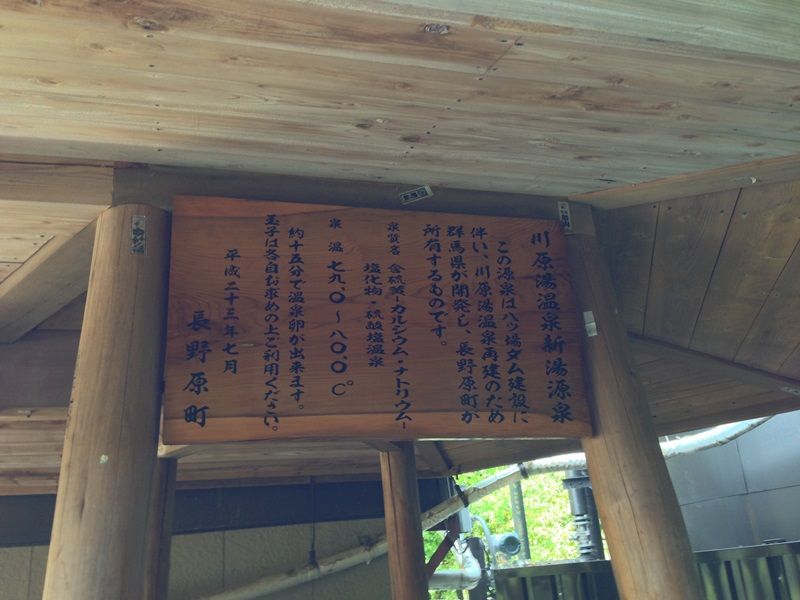 川原湯温泉新湯源泉
この源泉は八ッ場ダム建設に
伴い、川原湯温泉再建のため
群馬県が開発し、長野原町が
所有するものです。
泉質名 含硫黄ーカルシウム・ナトリウムー
塩化物・硫酸塩温泉
泉温 七九.〇～八〇.〇℃
約十五分で温泉卵が出来ます。
玉子は各自お求めの上ご利用ください。
平成二十三年七月
長野原町